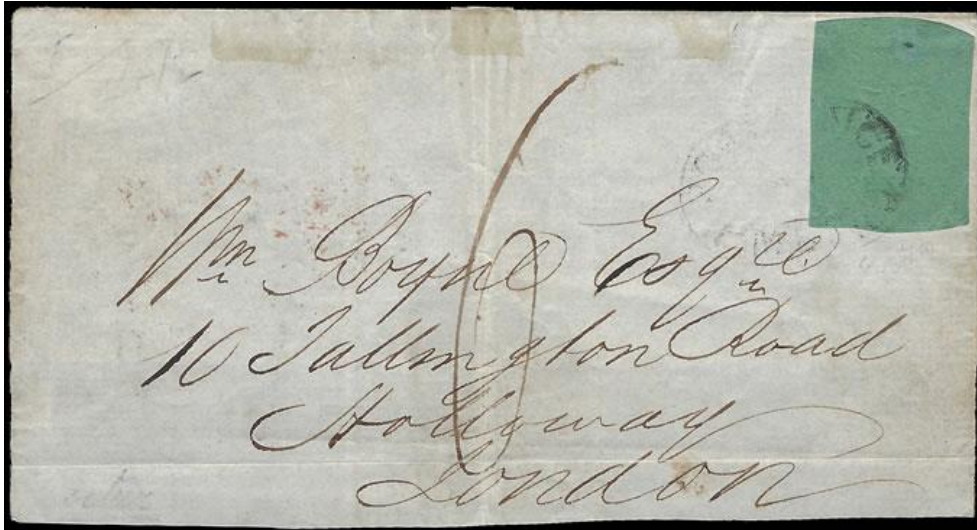 6
Wm Boyne Esqre
10 Tollington Road
Holloway
London